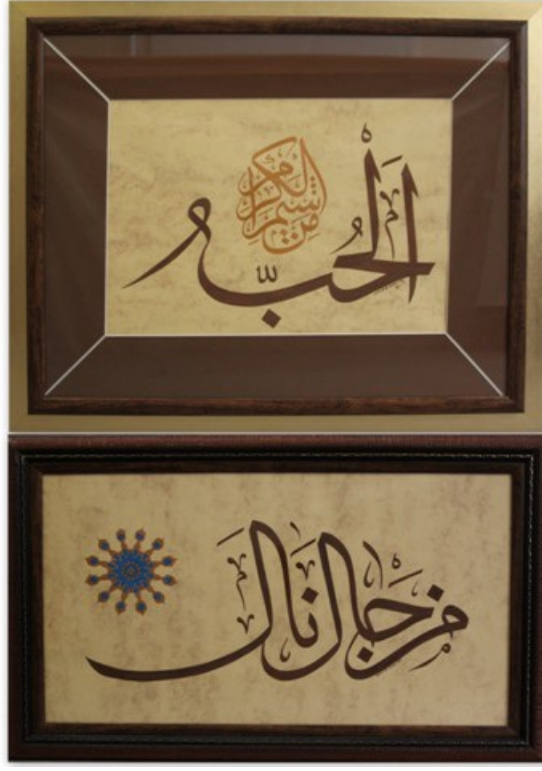 الحُبّ
مِنْ شِيَمِ الكِرَام
مَنْ جَالَ نَالَ